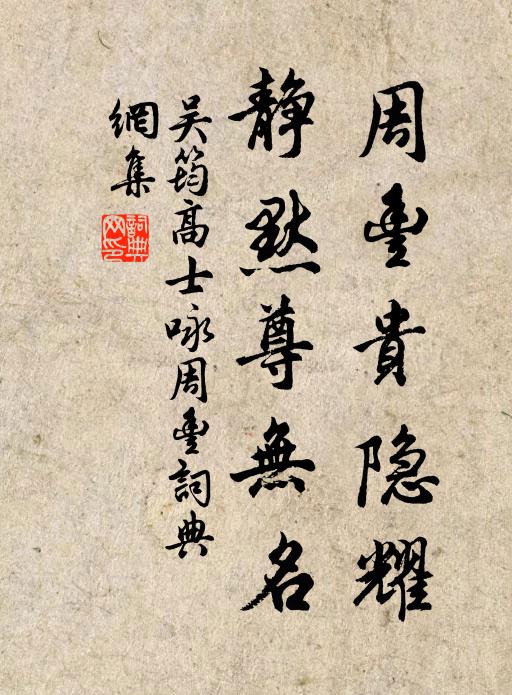 周豊貴隐耀
静默尊無名
吴筠高士咏周豊詞典
網集
詞典
网印